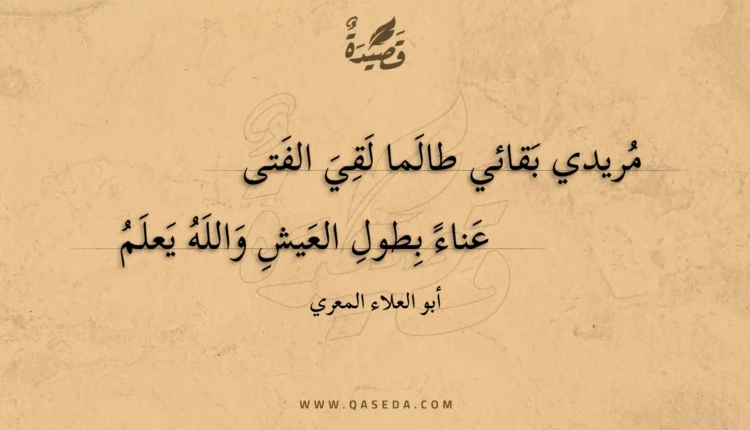 قَصِيْدَةٌ
مُريدي بَقائي طالَما لَقِيَ الفَتى
عَناءً بِطولِ العَيشِ وَاللَهُ يَعلَمُ
أبو العلاء المعري
WWW.QASEDA.COM